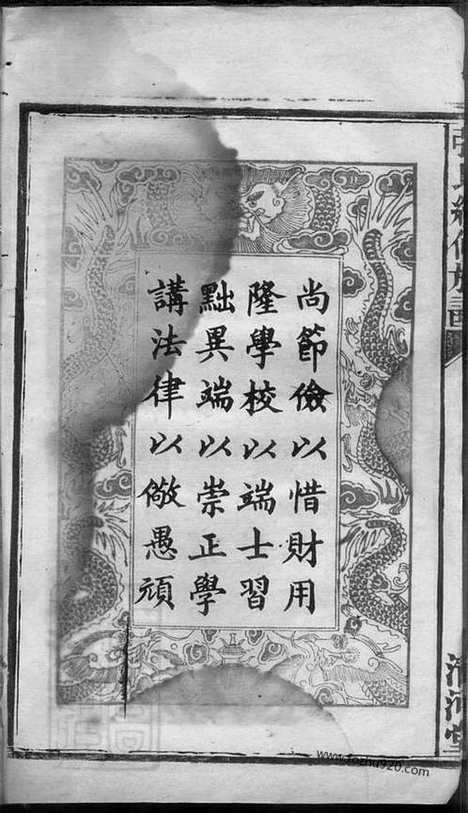 尚節儉以惜財用
隆學校以端士習
黜異端以崇正學
講法律以儆愚頑
清河堂
www.fozhu920.com